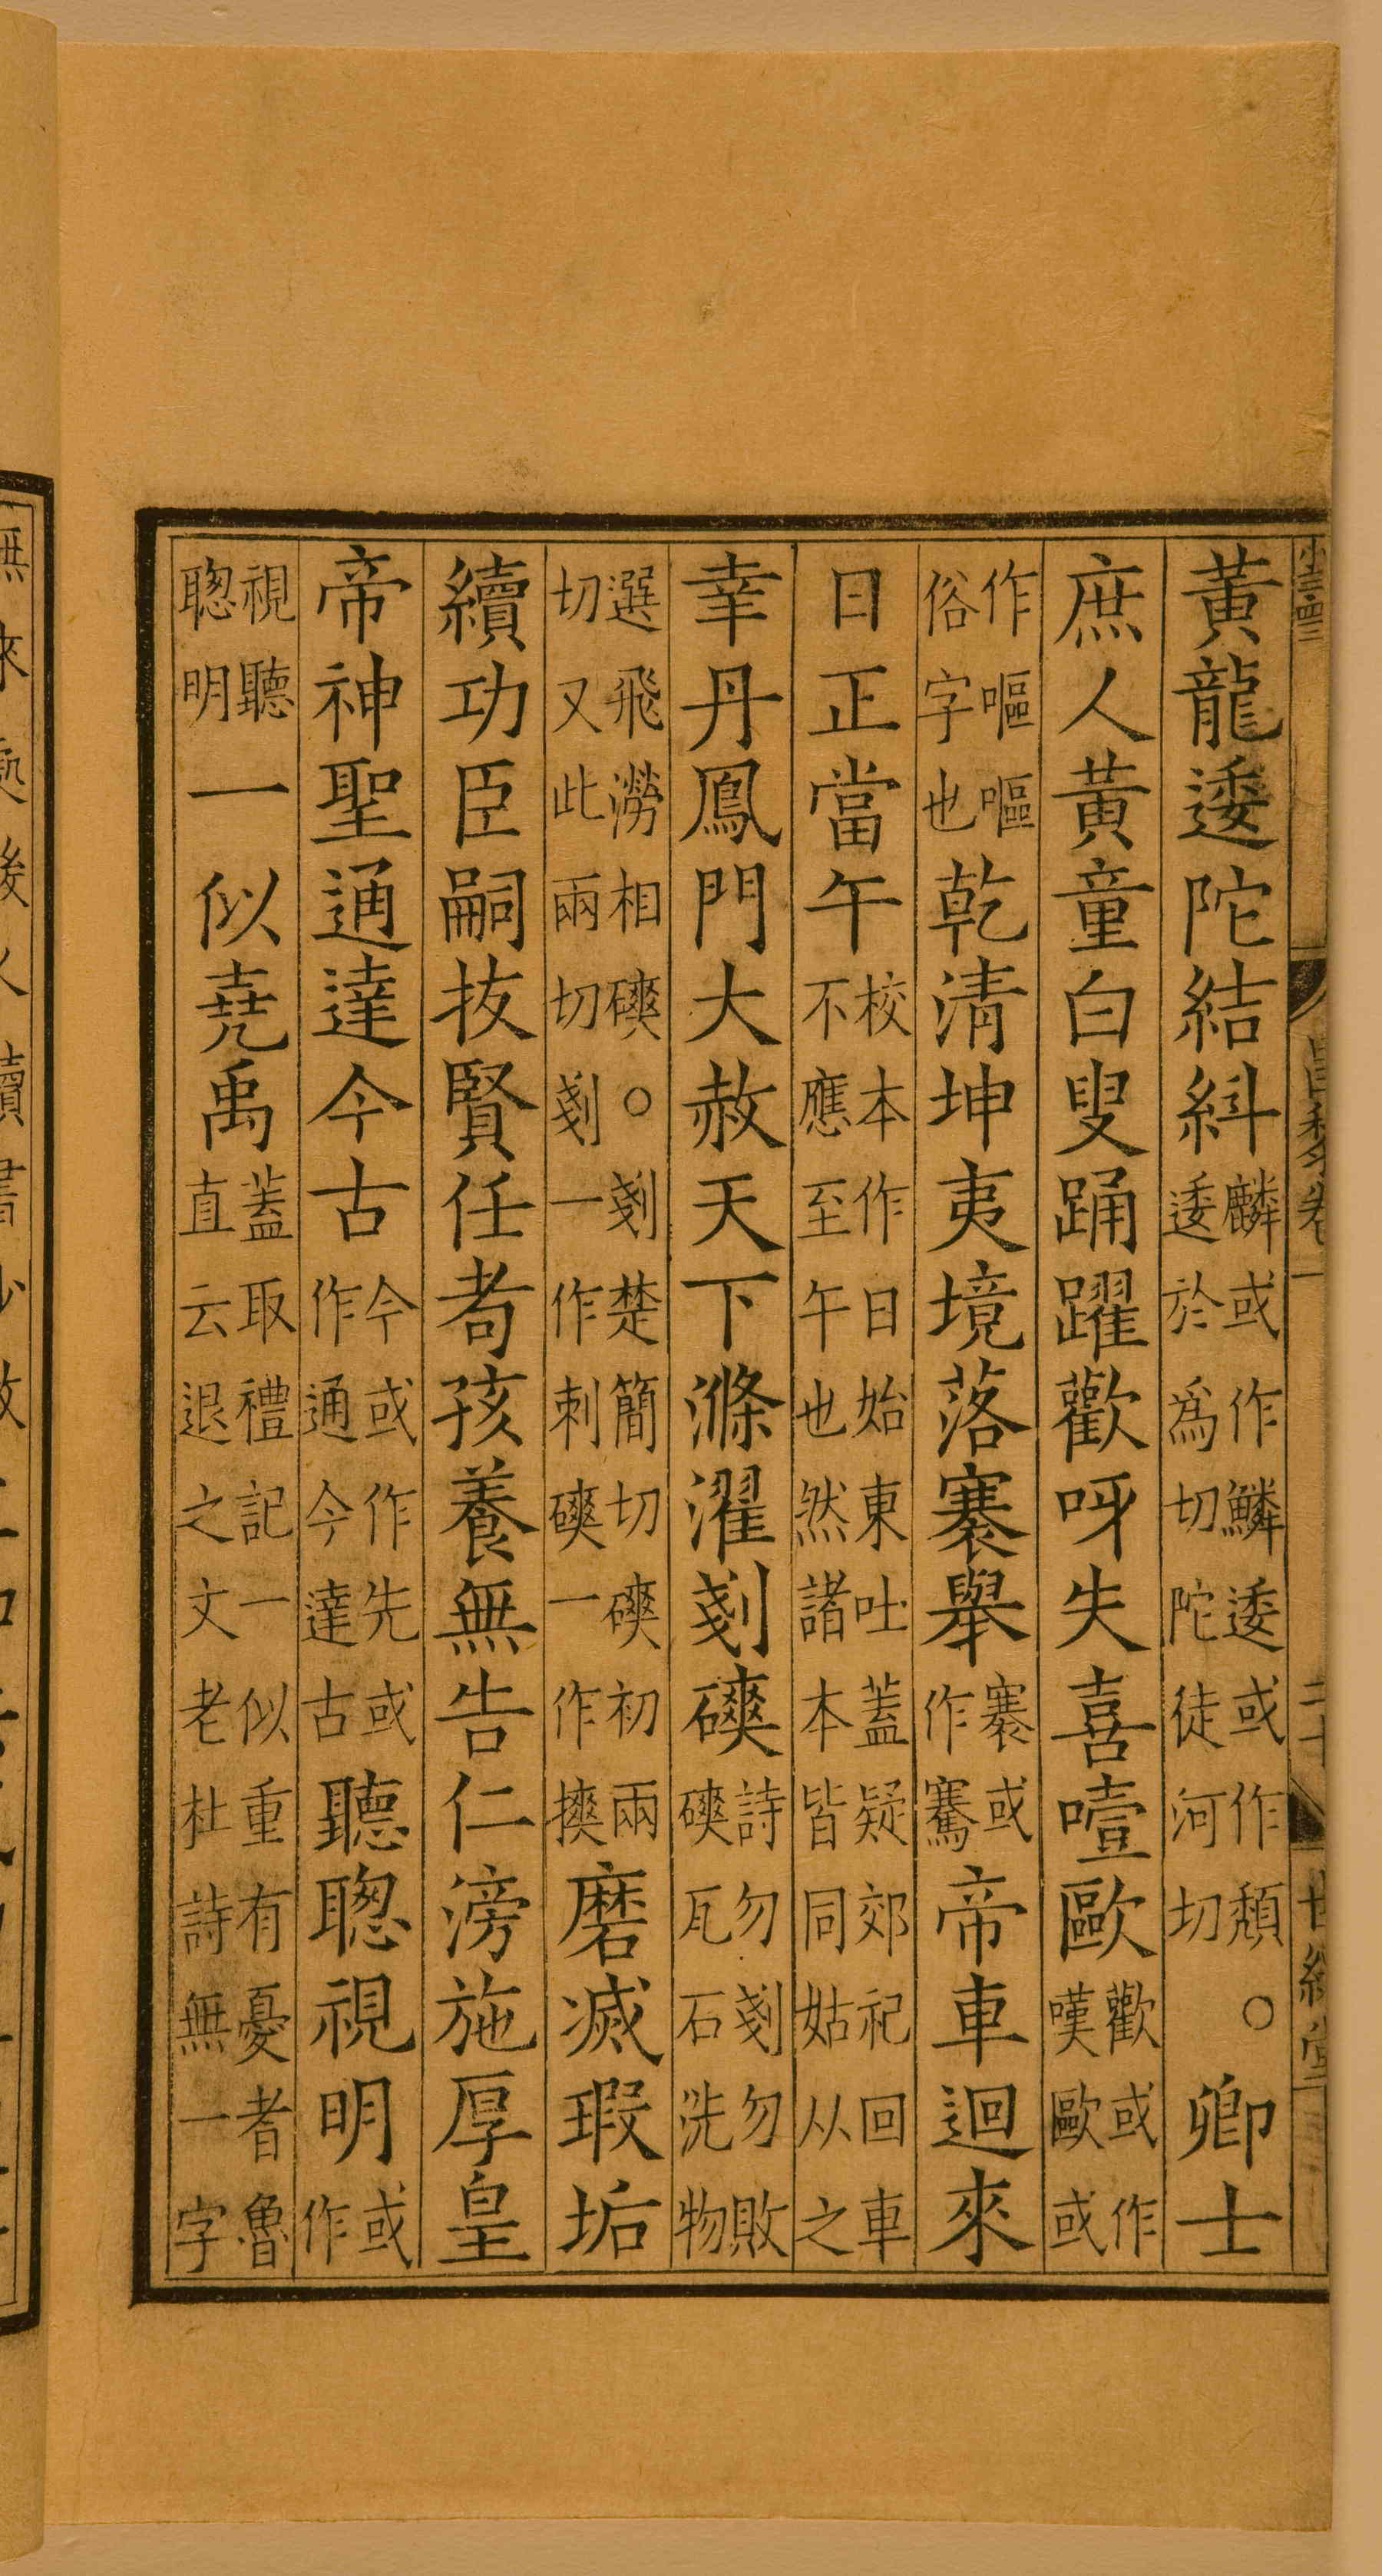 黃龍逶陀結糾麟或作鱗逶或作頽○逶於爲切陀徒河切卿士
庶人黃童白叟踊躍歡呀失喜噎歐歡或作嘆歐或
作嘔嘔俗字也乾清坤夷境落褰舉褰或作騫帝車迴來
日正當午校本作日始東吐蓋疑郊祀回車不應至午也然諸本皆同姑从之
幸丹鳳門大赦天下滌濯剗磢詩勿剗勿敗磢瓦石洗物
選飛澇相磢○剗楚簡切磢初兩切又此兩切剗一作刺磢一作摤磨滅瑕垢
續功臣嗣拔賢任耇孩養無告仁滂施厚皇
帝神聖通達今古今或作先或作通今達古聽聰視明或作
視聽聰明一似堯禹蓋取禮記一似重有憂者魯直云退之文老杜詩無一字